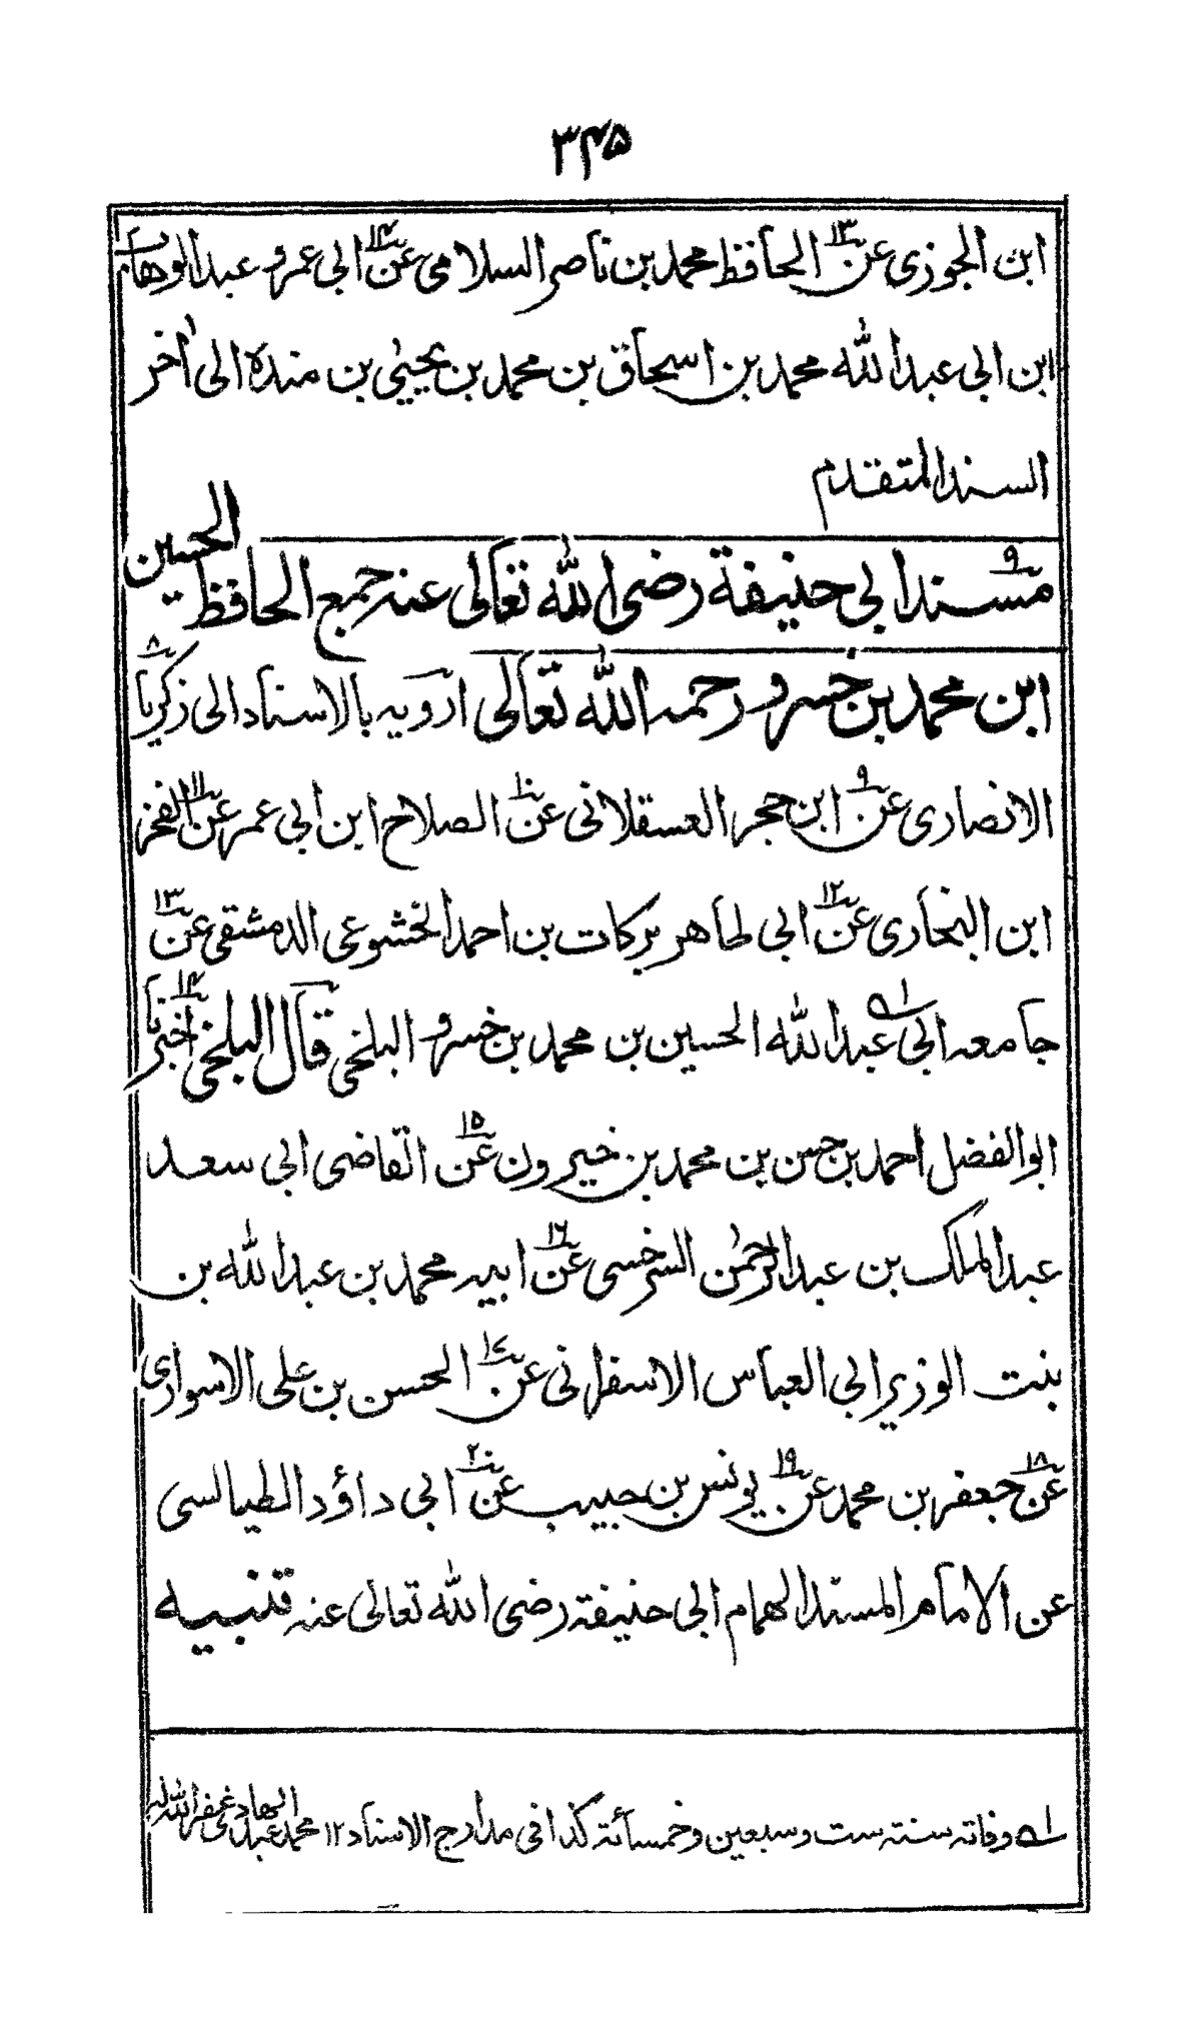 ۳۴۵
ابن الجوزی عن۱۳ الحافظ محمد بن ناصر السلامی عن۱۴ ابی عمرو عبدالوهاب
ابن ابی عبدالله محمد بن اسحاق بن محمد بن یحییٰ بن مندۃ الی اٰخر
السند المتقدم
مسند۹ ابی حنیفة رضی الله تعالی عنه جمع الحافظ الحسین
ابن محمد بن خسرو رحمه الله تعالی ارویه بالاسناد الی زکریا۸
الانصاری عن۹ ابن حجر العسقلانی عن۱۰ الصلاح ابن ابی عمر عن۱۱ الفخر
ابن البخاری عن۱۲ ابی طاهر برکات بن احمد الخشوعی الدمشقی عن۱۳
جامعه ابی عبدالله الحسین بن محمد بن خسرو البلخی قال البلخی اخبرنا۱۴
ابو الفضل احمد بن حسن بن محمد بن خیرون عن۱۵ القاضی ابی سعد
عبدالملک بن عبدالرحمٰن السرخسی عن۱۶ ابیه محمد بن عبدالله بن
بنت الوزیر ابی العباس الاسفرانی عن۱۷ الحسن بن علی الاسواری
عن۱۸ جعفر بن محمد عن۱۹ یونس بن حبیب عن۲۰ ابی داؤد الطیالسی
عن الامام المسند الهمام ابی حنیفه رضی الله تعالی عنه تنبیه
له وفاته سنة ست وسبعین وخمسائة کذا فی مدارج الاسناد ۱۲ محمد عبدالهادی غفر الله له